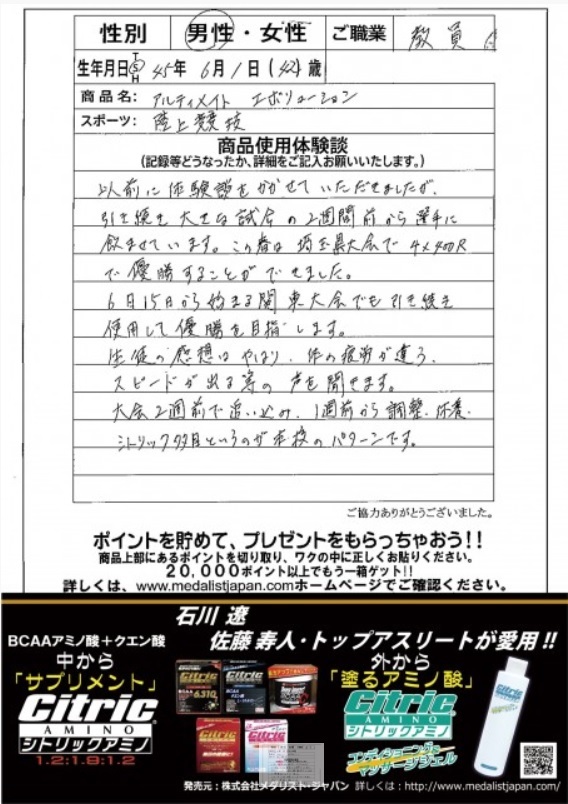 性別 男性・女性 ご職業 教員
生年月日 T S H 45年 6月1日(42)歳
商品名: アルティメイト エボリューション
スポーツ: 陸上競技
商品使用体験談
(記録等どうなったか、詳細をご記入お願いいたします。)
以前に体験談をかかせていただきましたが、
引き続き大きな試合の2週間前から選手に
飲ませています。この春は埼玉県大会で4×400R
で優勝することができました。
6月15日から始まる関東大会でも引き続き
使用して優勝を目指します。
生徒の感想はやはり、体の疲労が違う、
スピードが出る等の声を聞きます。
大会2週前で追い込み、1週前から調整、休養、
シトリック多目というのが本校のパターンです。
ご協力ありがとうございました。
ポイントを貯めて、プレゼントをもらっちゃおう!!
商品上部にあるポイントを切り取り、ワクの中に正しくお貼りください。
20,000ポイント以上でもう一箱ゲット!!
詳しくは、www.medalistjapan.comホームページでご確認ください。
石川 遼
佐藤 寿人・トップアスリートが愛用!!
BCAAアミノ酸+クエン酸
中から
「サプリメント」
Citric
AMINO
シトリックアミノ
1.2:1.9:1.2
6,310
Citric
Citric
外から
「塗るアミノ酸」
Citric
AMINO
シトリックアミノ
コンディショニング
マッサージジェル
発売元:株式会社メダリスト・ジャパン 詳しくは:http://www.medalistjapan.com/